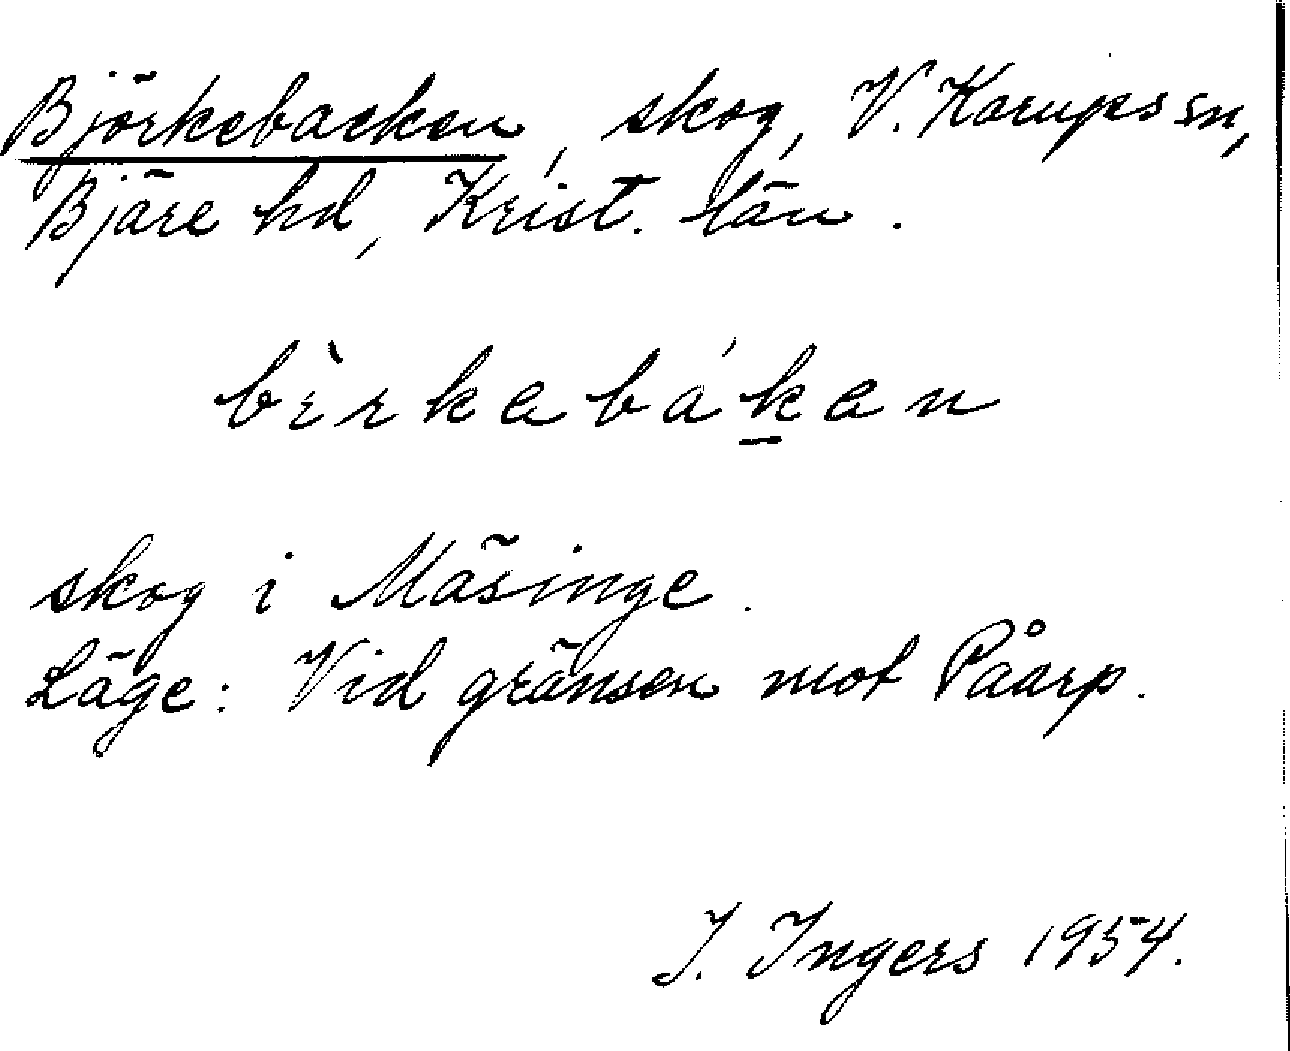 Björkebacken, skog, V. Karups sn,
Bjäre hd, Krist. län.
bèrkabákan
skog i Mäsinge.
Läge: Vid gränsen mot Påarp.
I. Ingers 1954.